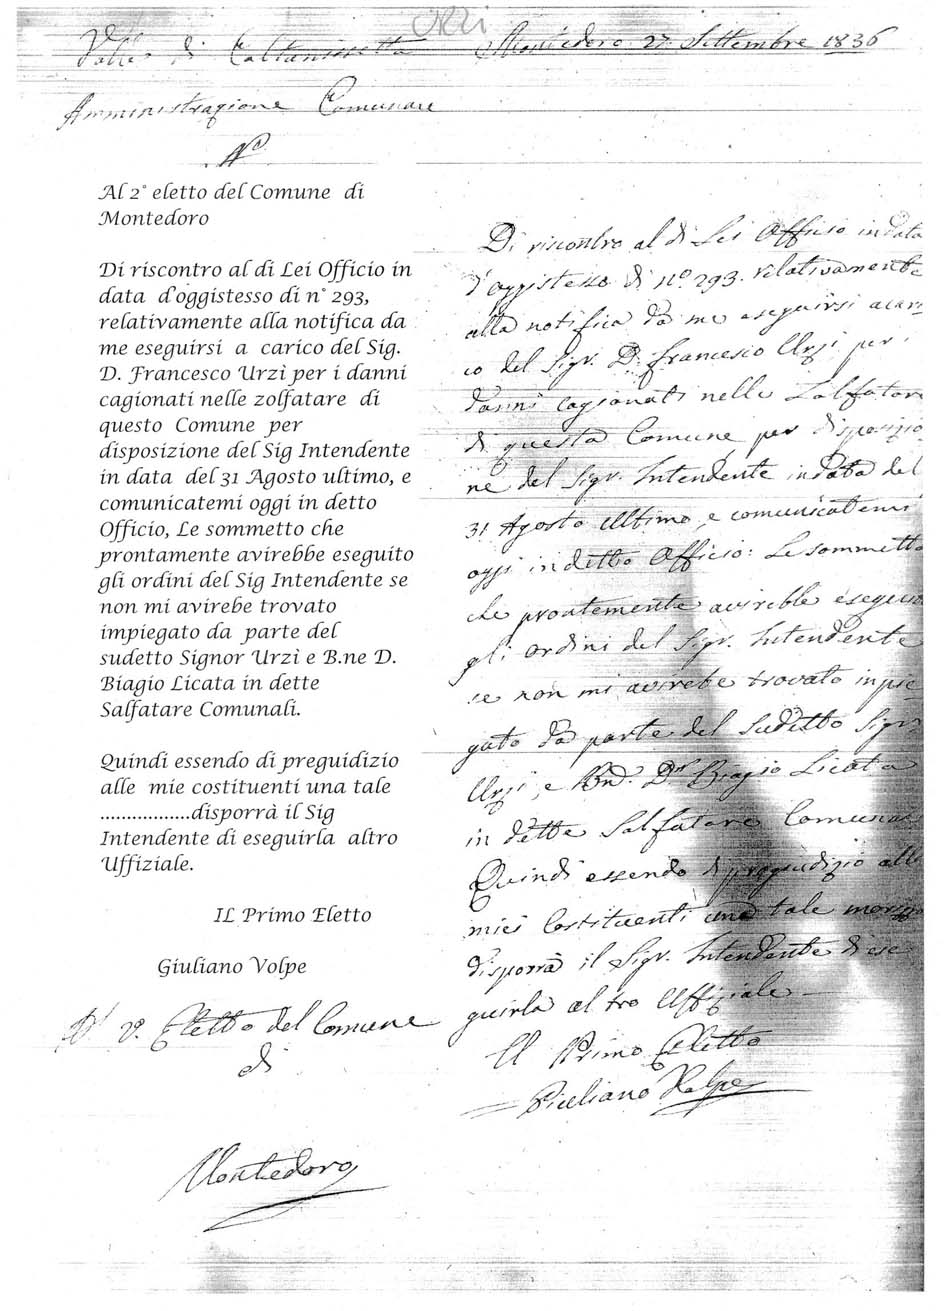 Urzi
Valle di Caltanissetta Montedoro 27 Settembre 1836
Amministrazione Comunale
N.°
Al 2° eletto del Comune di
Montedoro
Di riscontro al di Lei Officio in
data d'oggistesso di n° 293,
relativamente alla notifica da
me eseguirsi a carico del Sig.
D. Francesco Urzì per i danni
cagionati nelle zolfatare di
questo Comune per
disposizione del Sig Intendente
in data del 31 Agosto ultimo, e
comunicatemi oggi in detto
Officio, Le sommetto che
prontamente avirebbe eseguito
gli ordini del Sig Intendente se
non mi avirebe trovato
impiegato da parte del
sudetto Signor Urzì e B.ne D.
Biagio Licata in dette
Salfatare Comunali.
Quindi essendo di preguidizio
alle mie costituenti una tale
.................disporrà il Sig
Intendente di eseguirla altro
Uffiziale.
IL Primo Eletto
Giuliano Volpe
Eletto del Comune
di
Montedoro
Di riscontro al di Lei Officio in data
d'oggistesso di n.° 293. relativamente
alla notifica da me eseguirsi acari
co del Sigr. D. Francesco Urzi per i
danni cagionati nelle Salfatare
di questa Comune per disposizio
ne del Sigr. Intendente in data del
31 Agosto ultimo, e comunicatemi
oggi in detto Officio: Le sommetto
che prontemente avirebbe eseguito
gli ordini del Sigr. Intendente
se non mi avirebe trovato inpie
gato da parte del sudetto Sigr.
Urzi, e Bne. Dn. Biagio Licata
in dette Salfatare Comunali
Quindi essendo di pregiudizio alli
miei Costituenti una tale
disporrà il Sigr. Intendente di ese
guirla al tro Uffiziale
Il Primo Eletto
Giuliano Volpe